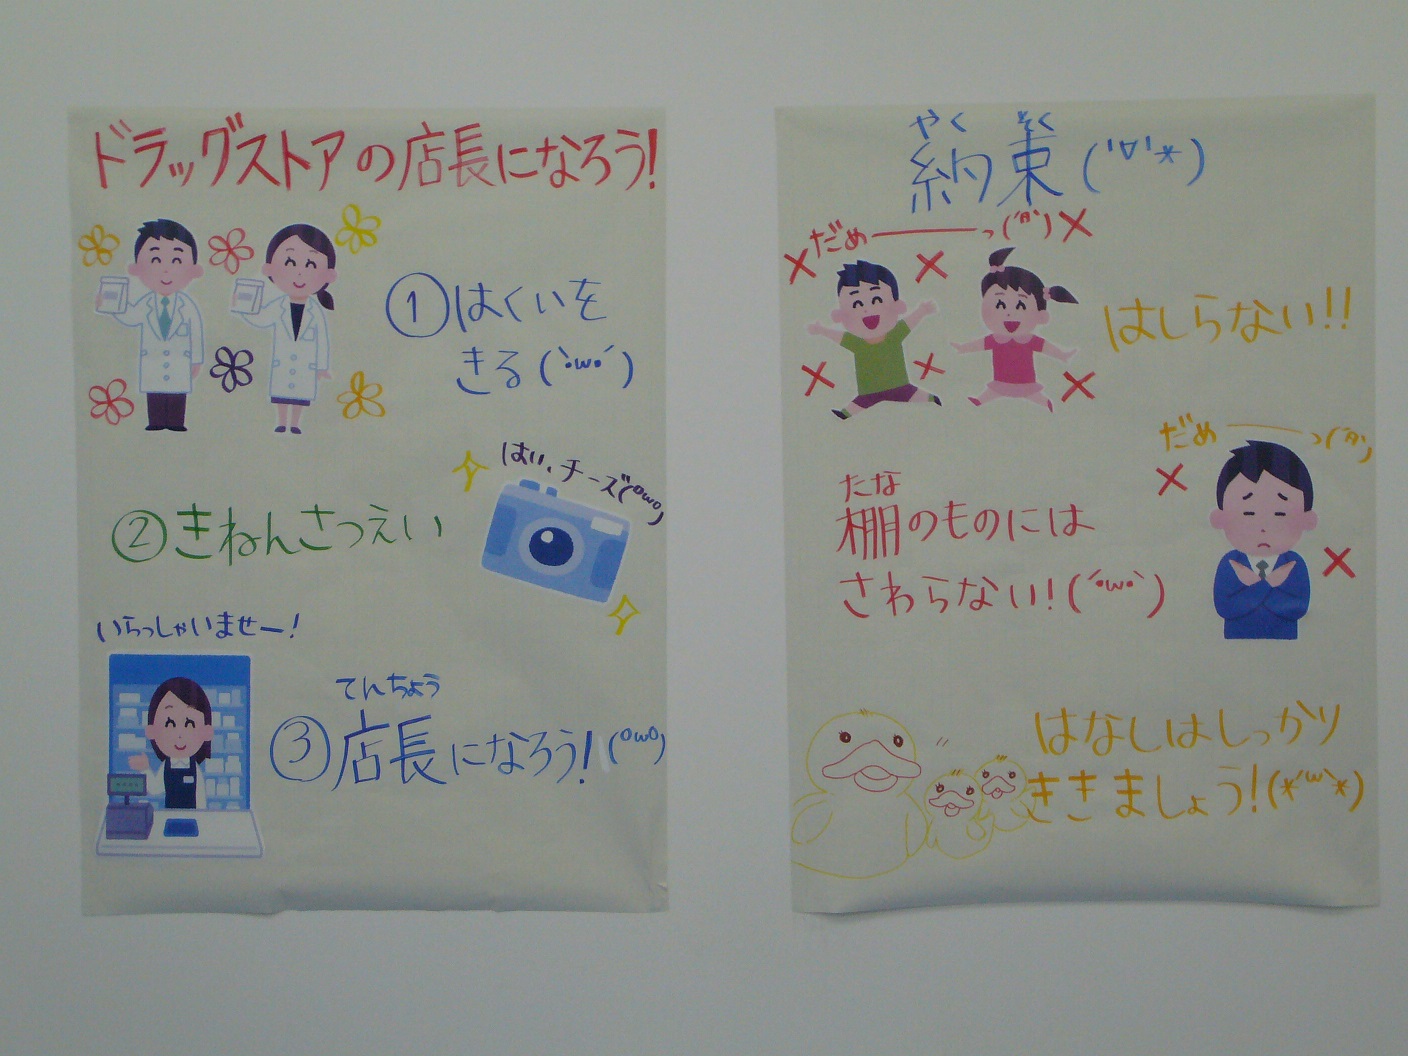 ドラッグストアの店長になろう!
①はくいを
きる(`･ω･´)
はい、チーズ(oωo)
②きねんさつえい
いらっしゃいませー!
てんちょう
③店長になろう!(oωo)
やくそく
約束('∀'*)
だめ――っ(´Д`)
はしらない!!
だめ――っ(´Д`)
たな
棚のものには
さわらない!(´･ω･`)
はなしはしっかり
ききましょう!(*´ω`*)